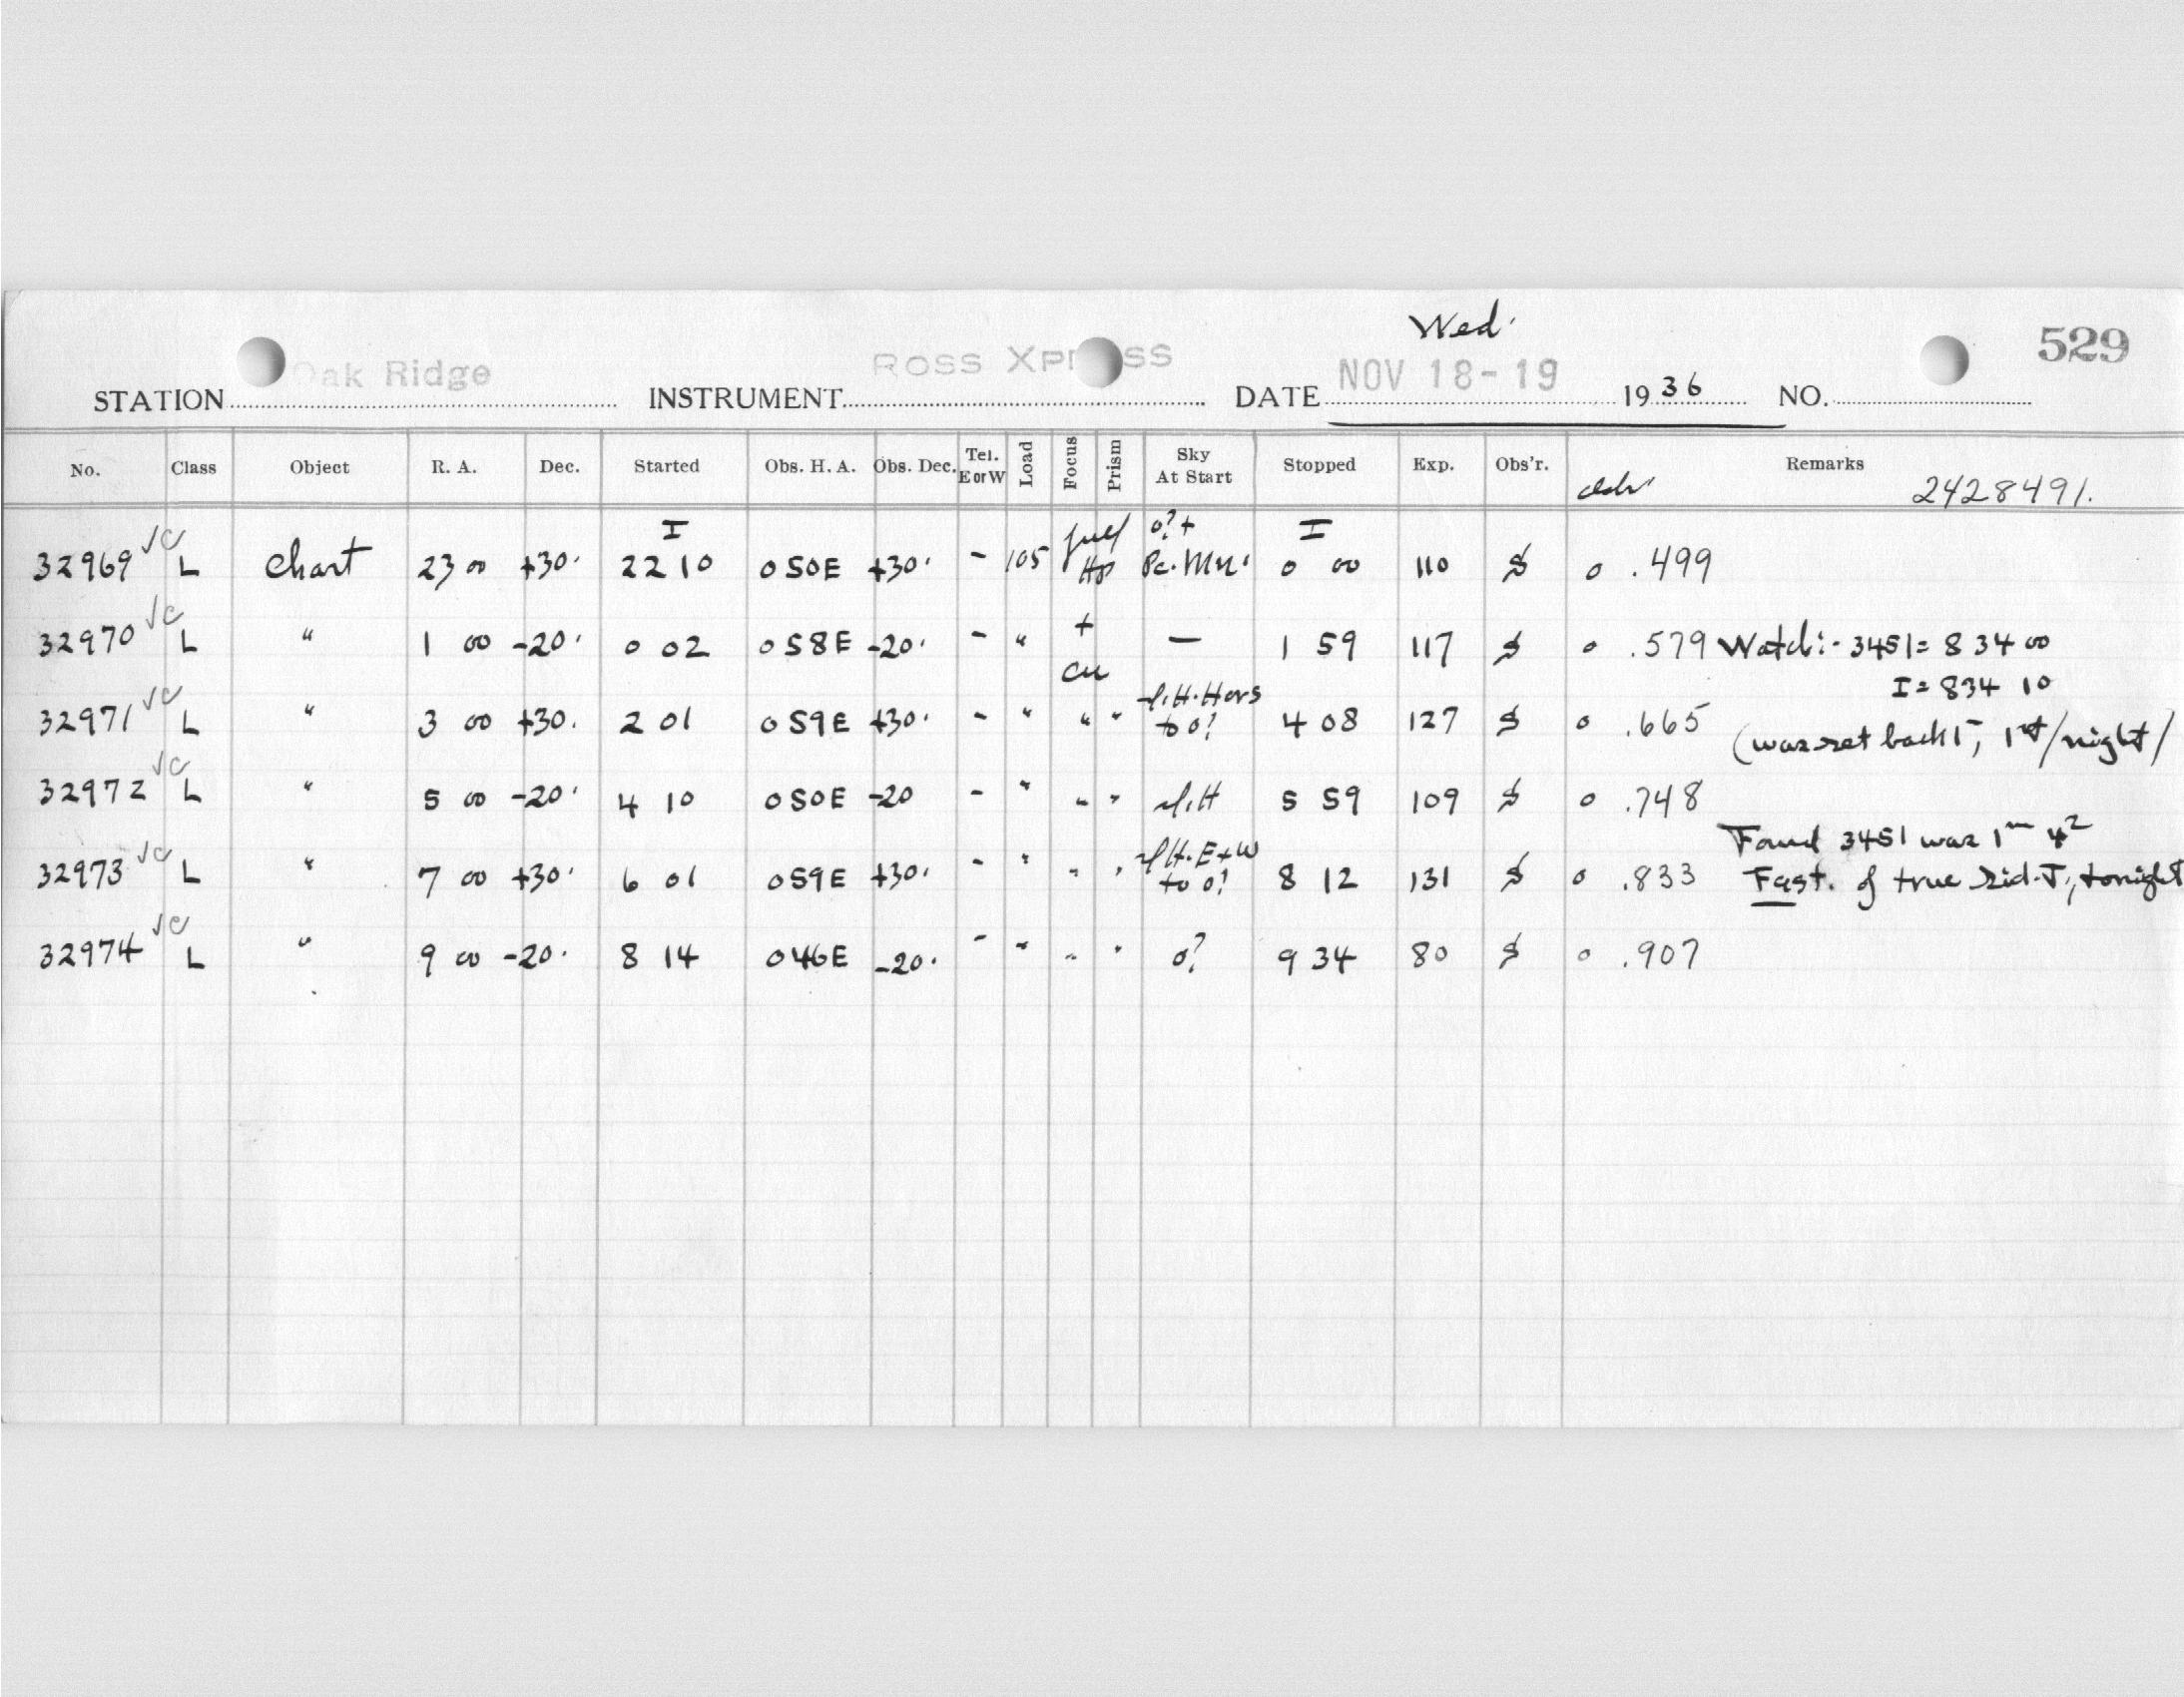 Wed.
529
STATION Oak Ridge INSTRUMENT ROSS XPRESS DATE NOV 18-19 1936 NO.
No. Class Object R. A. Dec. Started Obs. H. A. Obs. Dec. Tel. E or W Load Focus Prism Sky At Start Stopped Exp. Obs'r. Remarks
2428491.
I full o?+ I
32969 √C L Chart 23 00 +30· 22 10 0 50E +30· - 105 Pc. Mn. 0 00 110 S 0 .499
32970 √C L " 1 00 -20· 0 02 0 58E -20· - " + — 1 59 117 S 0 .579 Watch:- 3451= 8 34 00
Cu I= 834 10
32971 √C L " 3 00 +30. 2 01 0 59E +30· - " " " to o? 4 08 127 S 0 .665 (was set back 1-, 1st/night/
32972 √C L " 5 00 -20· 4 10 0 50E -20 - " " " 5 59 109 S 0 .748
Found 3451 was 1m 4 2
32973 √C L " 7 00 +30· 6 01 0 59E +30· - " " " H. E+W to o? 8 12 131 S 0 .833 Fast. of true Sid. T., tonight
32974 √C L " 9 00 -20· 8 14 0 46E -20· - " " " o? 9 34 80 S 0 .907